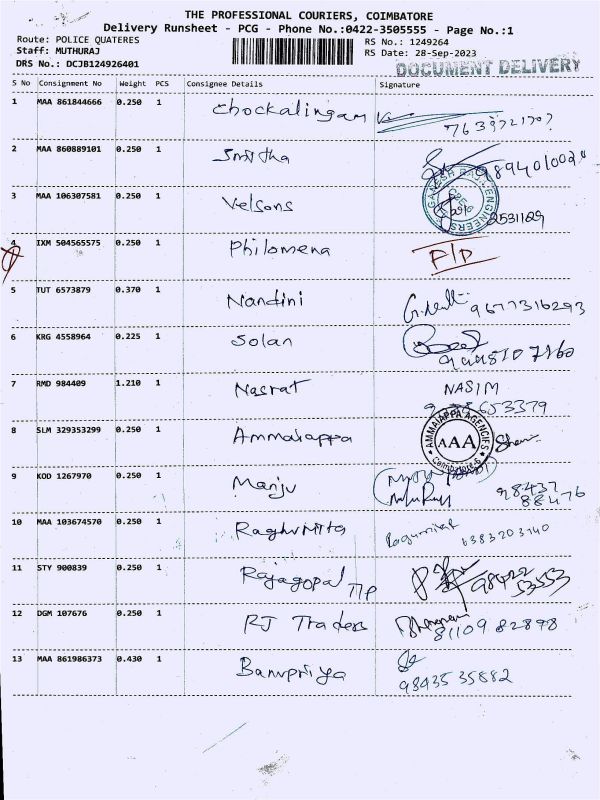 THE PROFESSIONAL COURIERS, COIMBATORE
Delivery Runsheet - PCG - Phone No.:0422-3505555 - Page No.:1
Route: POLICE QUATERES
RS No.: 1249264
Staff: MUTHURAJ
RS Date: 28-Sep-2023
DRS No.: DCJB124926401
DOCUMENT DELIVERY
S No Consignment No Weight PCS Consignee Details Signature
1 MAA 861844666 0.250 1 Chockalingam
2 MAA 860889101 0.250 1 Smitha
3 MAA 106307581 0.250 1 Velsons GANESH ENGINEERS 2531129
4 IXM 504565575 0.250 1 Philomena F/D
5 TUT 6573879 0.370 1 Nandini 9677316293
6 KRG 4558964 0.225 1 Solan
7 RMD 984409 1.210 1 Nasrat NASIM
653379
8 SLM 329353299 0.250 1 Ammaiappa AMMAIAPPA AGENCIES AAA Coimbatore-6
9 KOD 1267970 0.250 1 Manju 98437
88476
10 MAA 103674570 0.250 1 Raghumitta 6383203740
11 STY 900839 0.250 1 Rajagopal TTP 98422
53553
12 DGM 107676 0.250 1 RJ Traders
81109 82898
13 MAA 861986373 0.430 1 Banupriya
98435 35882